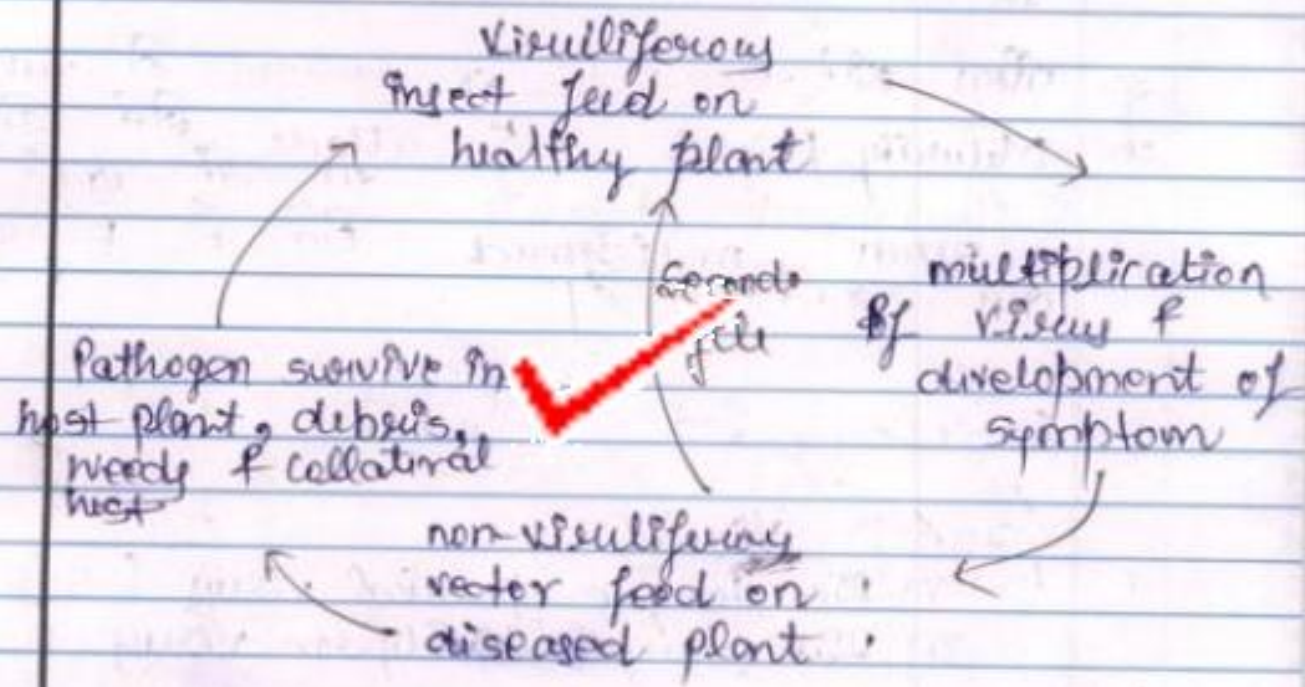 Viruliferous
insect feed on
healthy plant
multiplication
of virus &
development of
symptom
Pathogen survive in
host plant, debris,
weeds & collateral
host
non-viruliferous
vector feed on
diseased plant